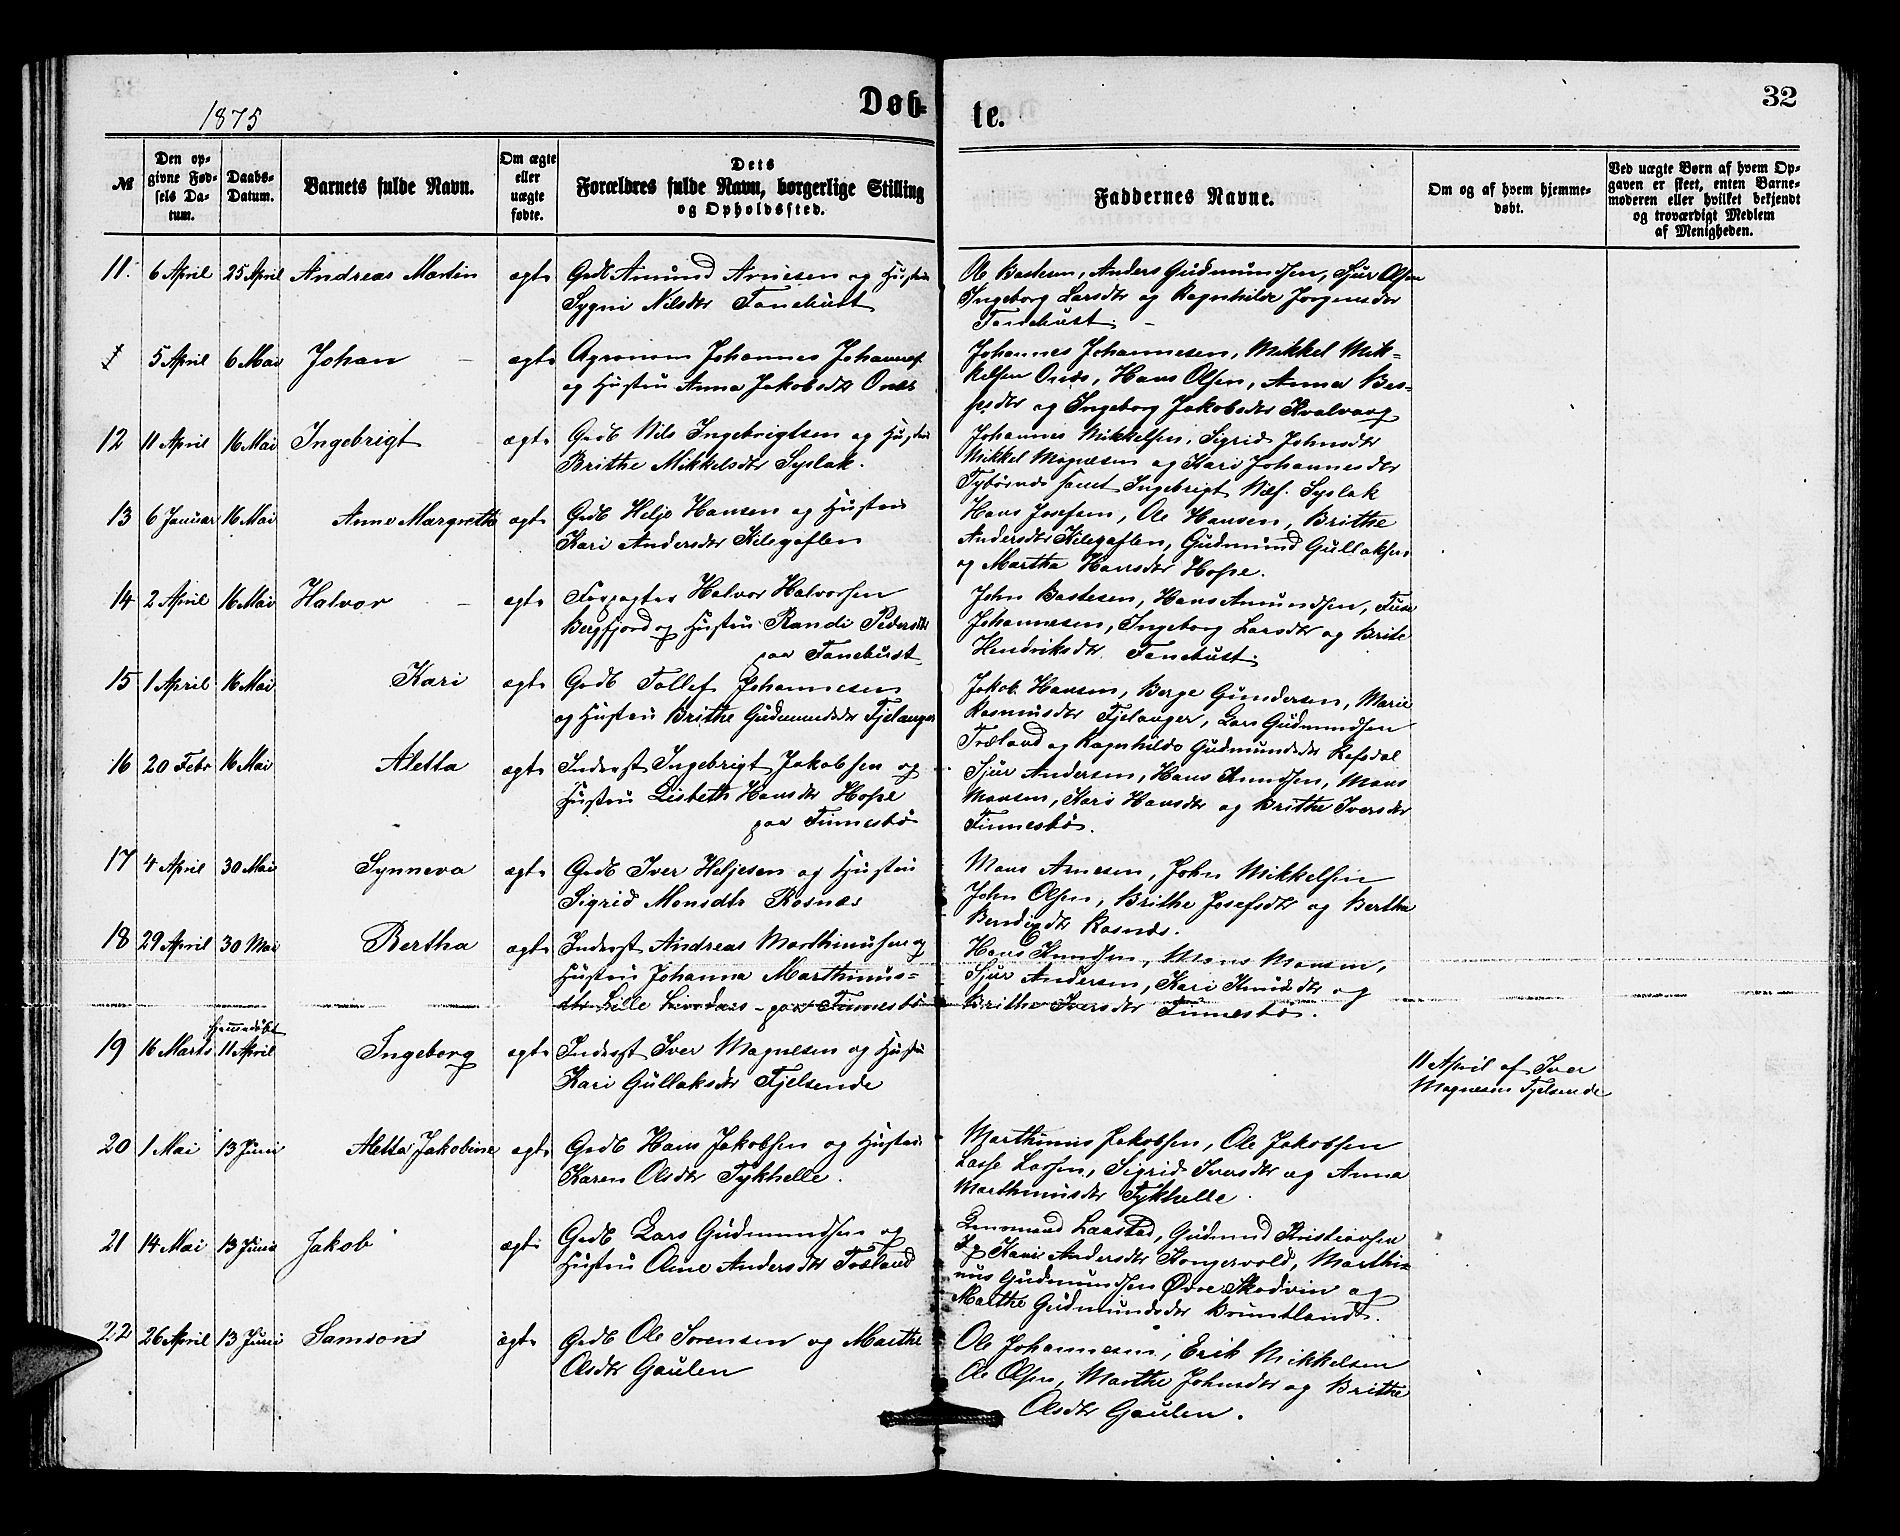 1875
Døb-
te.
32
№
Den op-
givne Fød-
sels Da-
tum.
Daabs-
Datum.
Barnets fulde Navn.
Om ægte
eller
uægte
fødte.
Dets
Forældres fulde Navn, borgerlige Stilling
og Opholdssted.
Faddernes Navne.
Om og af hvem hjemme-
døbt.
Ved uægte Børn af hvem Op-
gaven er skeet, enten Barne-
moderen eller hvilket bekjendt
og troværdigt Medlem
af Menigheden.
11. 6 April 25 April Andreas Martin ægte Gdb Amund Arnesen og Hustru
Sygni Nilsdtr Tanehust
Ole Bastesen, Anders Gudmundsen, Sjur Olsen
Ingeborg Larsdtr og Ragnhilde Jørgensdtr
Tanehust.
5 April 6 Mai Johan ægte Agronom Johannes Johannes.
og Hustru Anna Jakobsdtr Onæs
Johannes Johannesen, Mikkel Mik-
kelsen Onæs, Hans Olsen, Anna Bas-
og Ingeborg Jakobsdtr Kvalvaag
12 11 April 16 Mai Ingebrigt ægte Gdb Nils Ingebrigtsen og Hustru
Brithe Mikkelsdtr Syslak.
Johannes Mikkelsen, Sigrid Johnsdtr
Mikkel Magnesen og Kari Johannesdtr
samt Ingebrigt Nils. Syslak
13 6 Januar 16 Mai Anne Margretha ægte Gdb Helje Hansen og Hustru
Kari Andersdtr Kilegaflen
Hans Josefsen, Ole Hansen, Brithe
Andersdtr Kilegaflen, Gudmund Gullaksen
og Martha Hansdtr Hope.
14 2 April 16 Mai Halvor ægte Forpagter Halvor Halvorsen
Bergfjord og Hustru Randi Pedersdtr
paa Tanehust
John Bastesen, Hans Amundsen,
Johannesen, Ingeborg Larsdtr og Brite
Hendriksdtr Tanehust.
15 1 April 16 Mai Kari ægte Gdb Tollef Johannesen
og Hustru Brithe Gudmundsdtr Fjelanger
Jakob Hansen, Berge Gundersen, Marie
Rasmusdtr Fjelanger, Lars Gudmundsen
Træland og Ragnhilde Gudmundsdtr Refsdal
16 20 Febr 16 Mai Aletta ægte Inderst Ingebrigt Jakobsen og
Hustru Lisbeth Hansdtr Hope
paa Finnesbø
Sjur Andersen, Hans Knudsen, Mons
Monsen, Kari Hansdtr og Brithe Iversdtr
Finnesbø.
17 4 April 30 Mai Synneva ægte Gdb Iver Heljesen og Hustru
Sigrid Monsdtr Rosnæs
Mons Arnesen, John Mikkelsen
John Olsen, Brithe Josefsdtr og Bertha
Bendixdtr Rosnæs.
18 29 April 30 Mai Bertha ægte Inderst Andreas Marthinusen og
Hustru Johanna Marthinus-
dtr Lille Lindaas - paa Finnesbø
Hans Knudsen, Mons Monsen,
Sjur Andersen, Kari Knudsdtr og
Brithe Iversdtr Finnesbø.
Hjemmedøbt
19 16 Marts 11 April Ingeborg ægte Inderst Iver Magnesen og Hustru
Kari Gullaksdtr Fjelsende
11 April af Iver
Magnesen Fjelsende
20 1 Mai 13 Juni Aletta Jakobine ægte Gdb Hans Jakobsen og Hustru
Karen Olsdtr Tykhelle.
Marthinus Jakobsen, Ole Jakobsen
Lasse Larsen, Sigrid Iversdtr og Anna
Marthinusdtr Tykhelle.
21 14 Mai 13 Juni Jakob ægte Gdb Lars Gudmundsen og
Hustru Oline Andersdtr Træland
Lensmand Laastad, Gudmund Kristiansen
Kari Andersdtr Kongsvold, Marthi-
nus Gudmundsen Øvre Skodvin og
Marthe Gudmundsdtr Bruntland.
22 26 April 13 Juni Samson ægte Gdb Ole Sørensen og Marthe
Olsdtr Gaulen
Ole Johannesen, Erik Mikkelsen
Ole Olsen, Marthe Johnsdtr og Brithe
Olsdtr Gaulen.